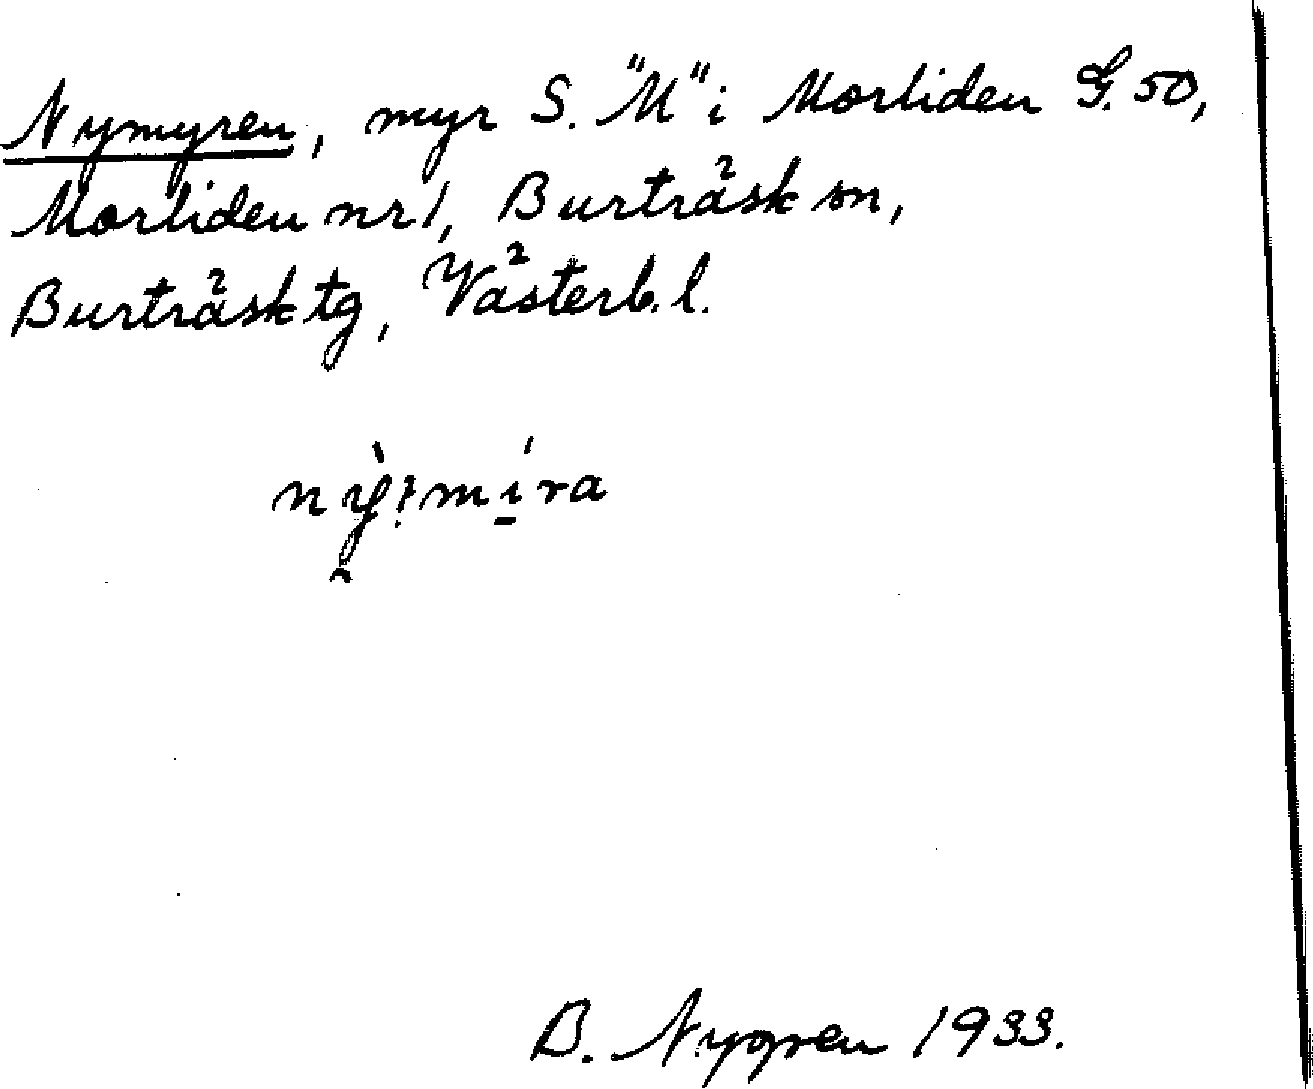 Nymyren, myr S. "M" i Morliden G. 50,
Morliden nr 1, Burträsk sn,
Burträsk tg, Västerb. l.
B. Nygren 1933.